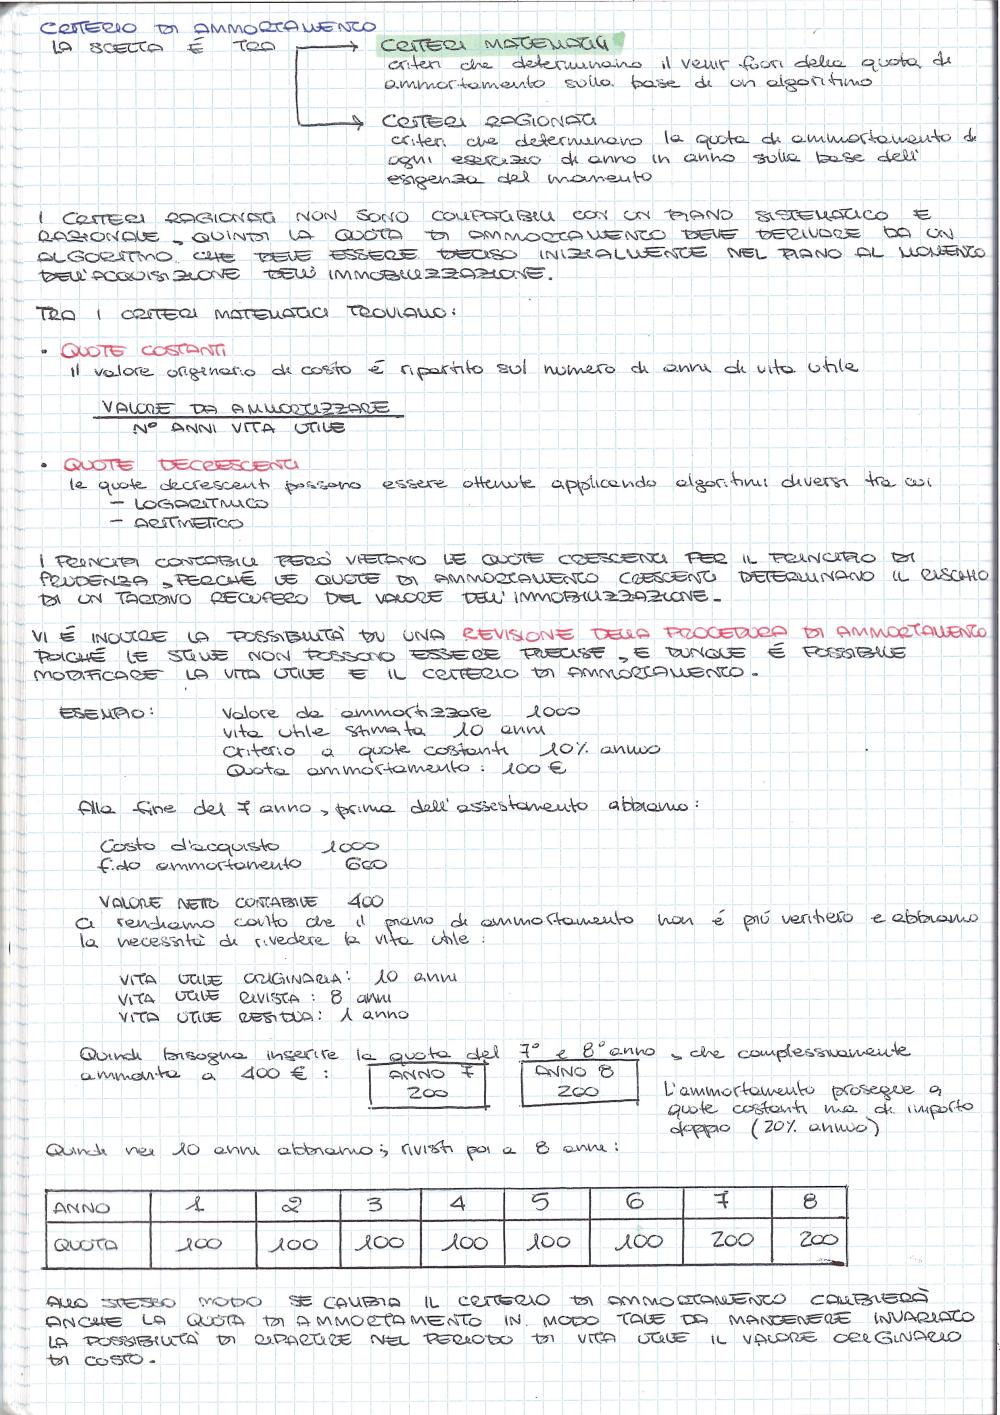 CRITERIO DI AMMORTAMENTO
LA SCELTA É TRA
CRITERI MATEMATICI
criteri che determinano il venir fuori della quota di
ammortamento sulla base di un algoritimo
CRITERI RAGIONATI
criteri che determinano la quota di ammortamento di
ogni esercizio di anno in anno sulla base dell'
esigenza del momento
I CRITERI RAGIONATI NON SONO COMPATIBILI CON UN PIANO SISTEMATICO E
RAZIONALE, QUINDI LA QUOTA DI AMMORTAMENTO DEVE DERIVARE DA UN
ALGORITMO CHE DEVE ESSERE DECISO INIZIALMENTE NEL PIANO AL MOMENTO
DELL'ACQUISIZIONE DELL'IMMOBILIZZAZIONE.
TRA I CRITERI MATEMATICI TROVIAMO:
• QUOTE COSTANTI
il valore originario di costo é ripartito sul numero di anni di vita utile
VALORE DA AMMORTIZZARE
N° ANNI VITA UTILE
• QUOTE DECRESCENTI
le quote decrescenti possono essere ottenute applicando algoritimi diversi tra cui
- LOGARITMICO
- ARITMETICO
I PRINCIPI CONTABILI PERÒ VIETANO LE QUOTE CRESCENTI PER IL PRINCIPIO DI
PRUDENZA, PERCHÉ LE QUOTE DI AMMORTAMENTO CRESCENTI DETERMINANO IL RISCHIO
DI UN TARDIVO RECUPERO DEL VALORE DELL'IMMOBILIZZAZIONE.
VI É INOLTRE LA POSSIBILITÀ DI UNA REVISIONE DELLA PROCEDURA DI AMMORTAMENTO
POICHÉ LE STIME NON POSSONO ESSERE PRECISE, E DUNQUE É POSSIBILE
MODIFICARE LA VITA UTILE E IL CRITERIO DI AMMORTAMENTO.
ESEMPIO: Valore da ammortizzare 1000
vita utile stimata 10 anni
criterio a quote costanti 10% annuo
Quota ammortamento: 100 €
Alla fine del 7 anno, prima dell'assestamento abbiamo:
Costo d'acquisto 1000
f.do ammortamento 600
VALORE NETTO CONTABILE 400
Ci rendiamo conto che il piano di ammortamento non é più veritiero e abbiamo
la necessità di rivedere la vita utile:
VITA UTILE ORIGINARIA: 10 anni
VITA UTILE RIVISTA: 8 anni
VITA UTILE RESIDUA: 1 anno
Quindi bisogna inserire la quota del 7° e 8° anno, che complessivamente
ammonta a 400 €: ANNO 7 ANNO 8
200 200
L'ammortamento prosegue a
quote costanti ma di importo
doppio (20% annuo)
Quindi nei 10 anni abbiamo; rivisti poi a 8 anni:
ANNO 1 2 3 4 5 6 7 8
QUOTA 100 100 100 100 100 100 200 200
ALLO STESSO MODO SE CAMBIA IL CRITERIO DI AMMORTAMENTO CAMBIERÀ
ANCHE LA QUOTA DI AMMORTAMENTO IN MODO TALE DA MANTENERE INVARIATO
LA POSSIBILITÀ DI RIPARTIRE NEL PERIODO DI VITA UTILE IL VALORE ORIGINARIO
DI COSTO.